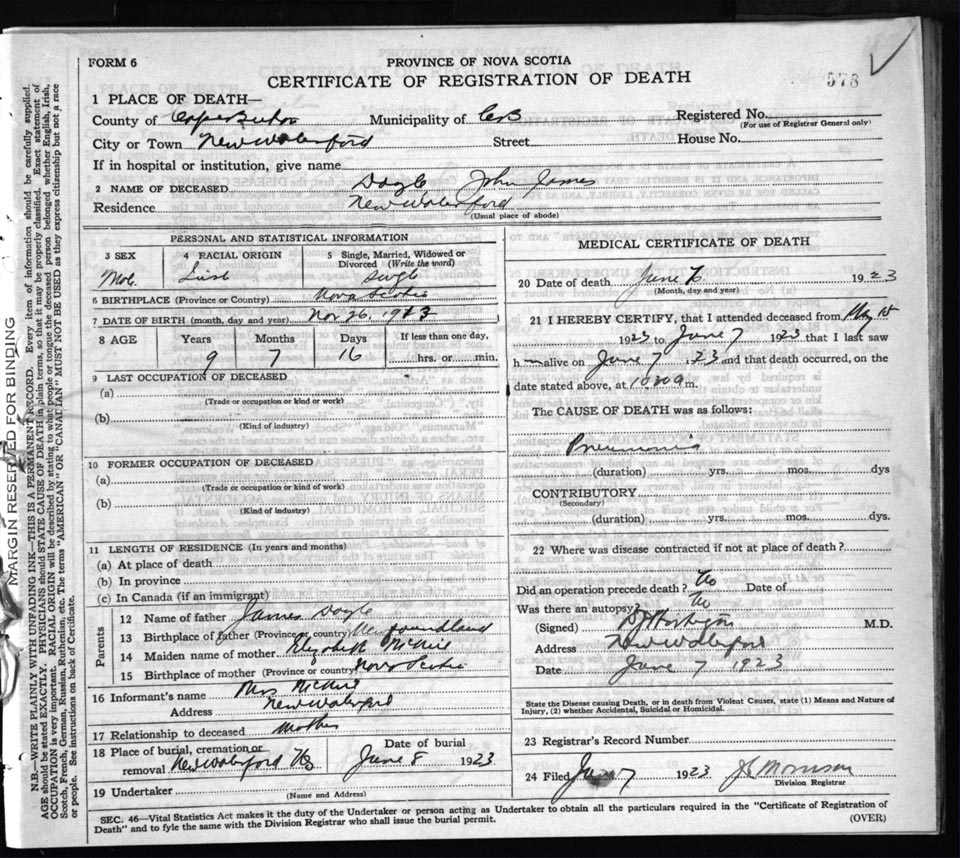 FORM 6
PROVINCE OF NOVA SCOTIA
CERTIFICATE OF REGISTRATION OF DEATH
578
1 PLACE OF DEATH—
County of Cape Breton Municipality of CB Registered No.
(For use of Registrar General only)
City or Town New Waterford Street House No.
If in hospital or institution, give name
2 NAME OF DECEASED Doyle John James
Residence New Waterford
(Usual place of abode)
PERSONAL AND STATISTICAL INFORMATION
3 SEX 4 RACIAL ORIGIN 5 Single, Married, Widowed or Divorced (Write the word)
Irish Single
6 BIRTHPLACE (Province or Country) Nova Scotia
7 DATE OF BIRTH (month, day and year) Nov 26, 1913
8 AGE Years Months Days If less than one day,
9 7 16 hrs. or min.
9 LAST OCCUPATION OF DECEASED
(a)
(Trade or occupation or kind or work)
(b)
(Kind of industry)
10 FORMER OCCUPATION OF DECEASED
(a)
(Trade or occupation or kind of work)
(b)
(Kind of industry)
11 LENGTH OF RESIDENCE (In years and months)
(a) At place of death
(b) In province
(c) In Canada (if an immigrant)
Parents
12 Name of father James Doyle
13 Birthplace of father (Province or country) Newfoundland
14 Maiden name of mother
15 Birthplace of mother (Province or country) Nova Scotia
16 Informant's name Mrs
Address New Waterford
17 Relationship to deceased Mother
18 Place of burial, cremation or removal New Waterford NS Date of burial June 8 1923
19 Undertaker
(Name and Address)
MEDICAL CERTIFICATE OF DEATH
20 Date of death June 1923
(Month, day and year)
21 I HEREBY CERTIFY, that I attended deceased from May 18
1923 to June 7 1923 that I last saw
h alive on June 7 1923 and that death occurred, on the
date stated above, at m.
The CAUSE OF DEATH was as follows:
Pneumonia
(duration) yrs. mos. dys
CONTRIBUTORY
(Secondary)
(duration) yrs. mos. dys.
22 Where was disease contracted if not at place of death?
Did an operation precede death? No Date of
Was there an autopsy? No
(Signed) M.D.
Address New Waterford
Date June 7 1923
State the Disease causing Death, or in death from Violent Causes, state (1) Means and Nature of
Injury, (2) whether Accidental, Suicidal or Homicidal.
23 Registrar's Record Number
24 Filed June 7 1923 Morrison
Division Registrar
SEC. 46—Vital Statistics Act makes it the duty of the Undertaker or person acting as Undertaker to obtain all the particulars required in the "Certificate of Registration of
Death" and to fyle the same with the Division Registrar who shall issue the burial permit.
(OVER)
MARGIN RESERVED FOR BINDING
N.B.—WRITE PLAINLY WITH UNFADING INK—THIS IS A PERMANENT RECORD. Every item of information should be carefully supplied.
AGE should be stated EXACTLY. PHYSICIANS should STATE CAUSE OF DEATH in plain terms, so that it may be properly classified. Exact statement of
OCCUPATION is very important. RACIAL ORIGIN will be described by stating to what people or tongue the deceased person belonged whether English, Irish,
Scotch, French, German, Russian, Ruthenian, etc. The terms "AMERICAN" OR "CANADIAN" MUST NOT BE USED as they express citizenship but not a race
or people. See instructions on back of Certificate.